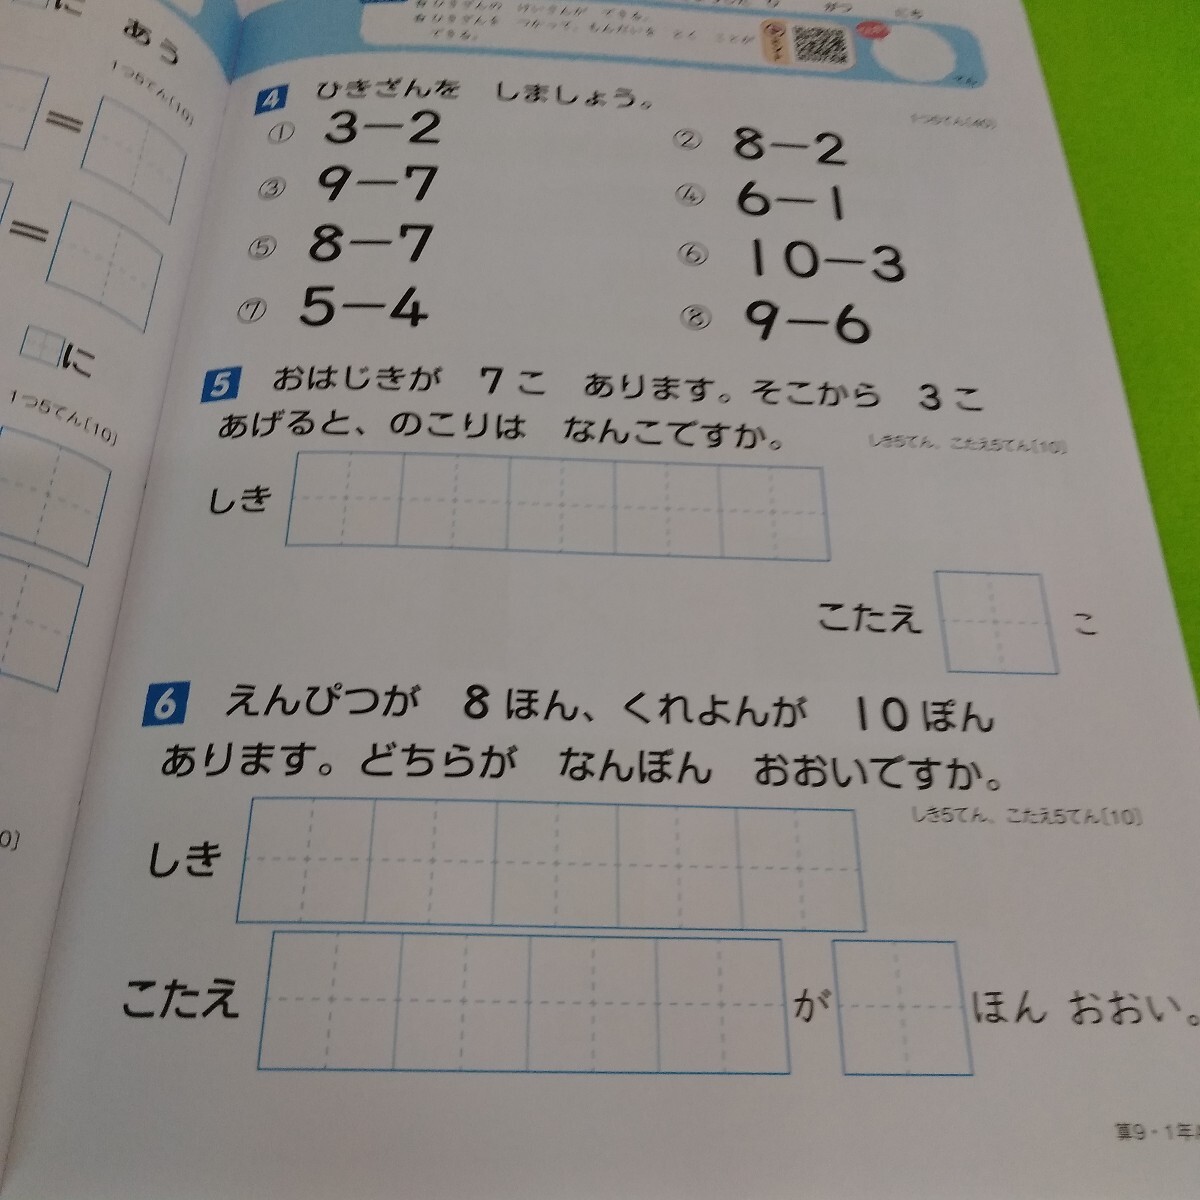 に
あう
1つ5てん〔10〕
=
=
に
1つ5てん〔10〕
0〕
ひきざんの けいさんが できる。
ひきざんを つかって、もんだいを とく ことが
できる。
4 ひきざんを しましょう。
1つ5てん〔40〕
① 3-2
② 8-2
③ 9-7
④ 6-1
⑤ 8-7
⑥ 10-3
⑦ 5-4
⑧ 9-6
5 おはじきが 7こ あります。そこから 3こ
あげると、のこりは なんこですか。
しき5てん、こたえ5てん〔10〕
しき
こたえ こ
6 えんぴつが 8ほん、くれよんが 10ぽん
あります。どちらが なんぼん おおいですか。
しき5てん、こたえ5てん〔10〕
しき
こたえ が ほん おおい。
算9・1年